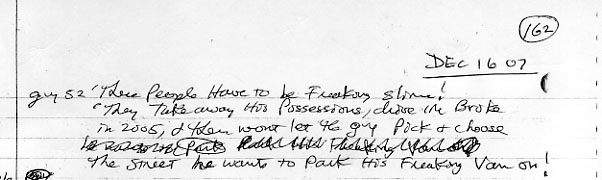 162
DEC 16 07
guy 52 "These People Have to be Freaking slime!
"They Take away His Possessions, drive him Broke
in 2005, & then wont let the guy Pick & choose
the street he wants to Park His Freaking Van on!